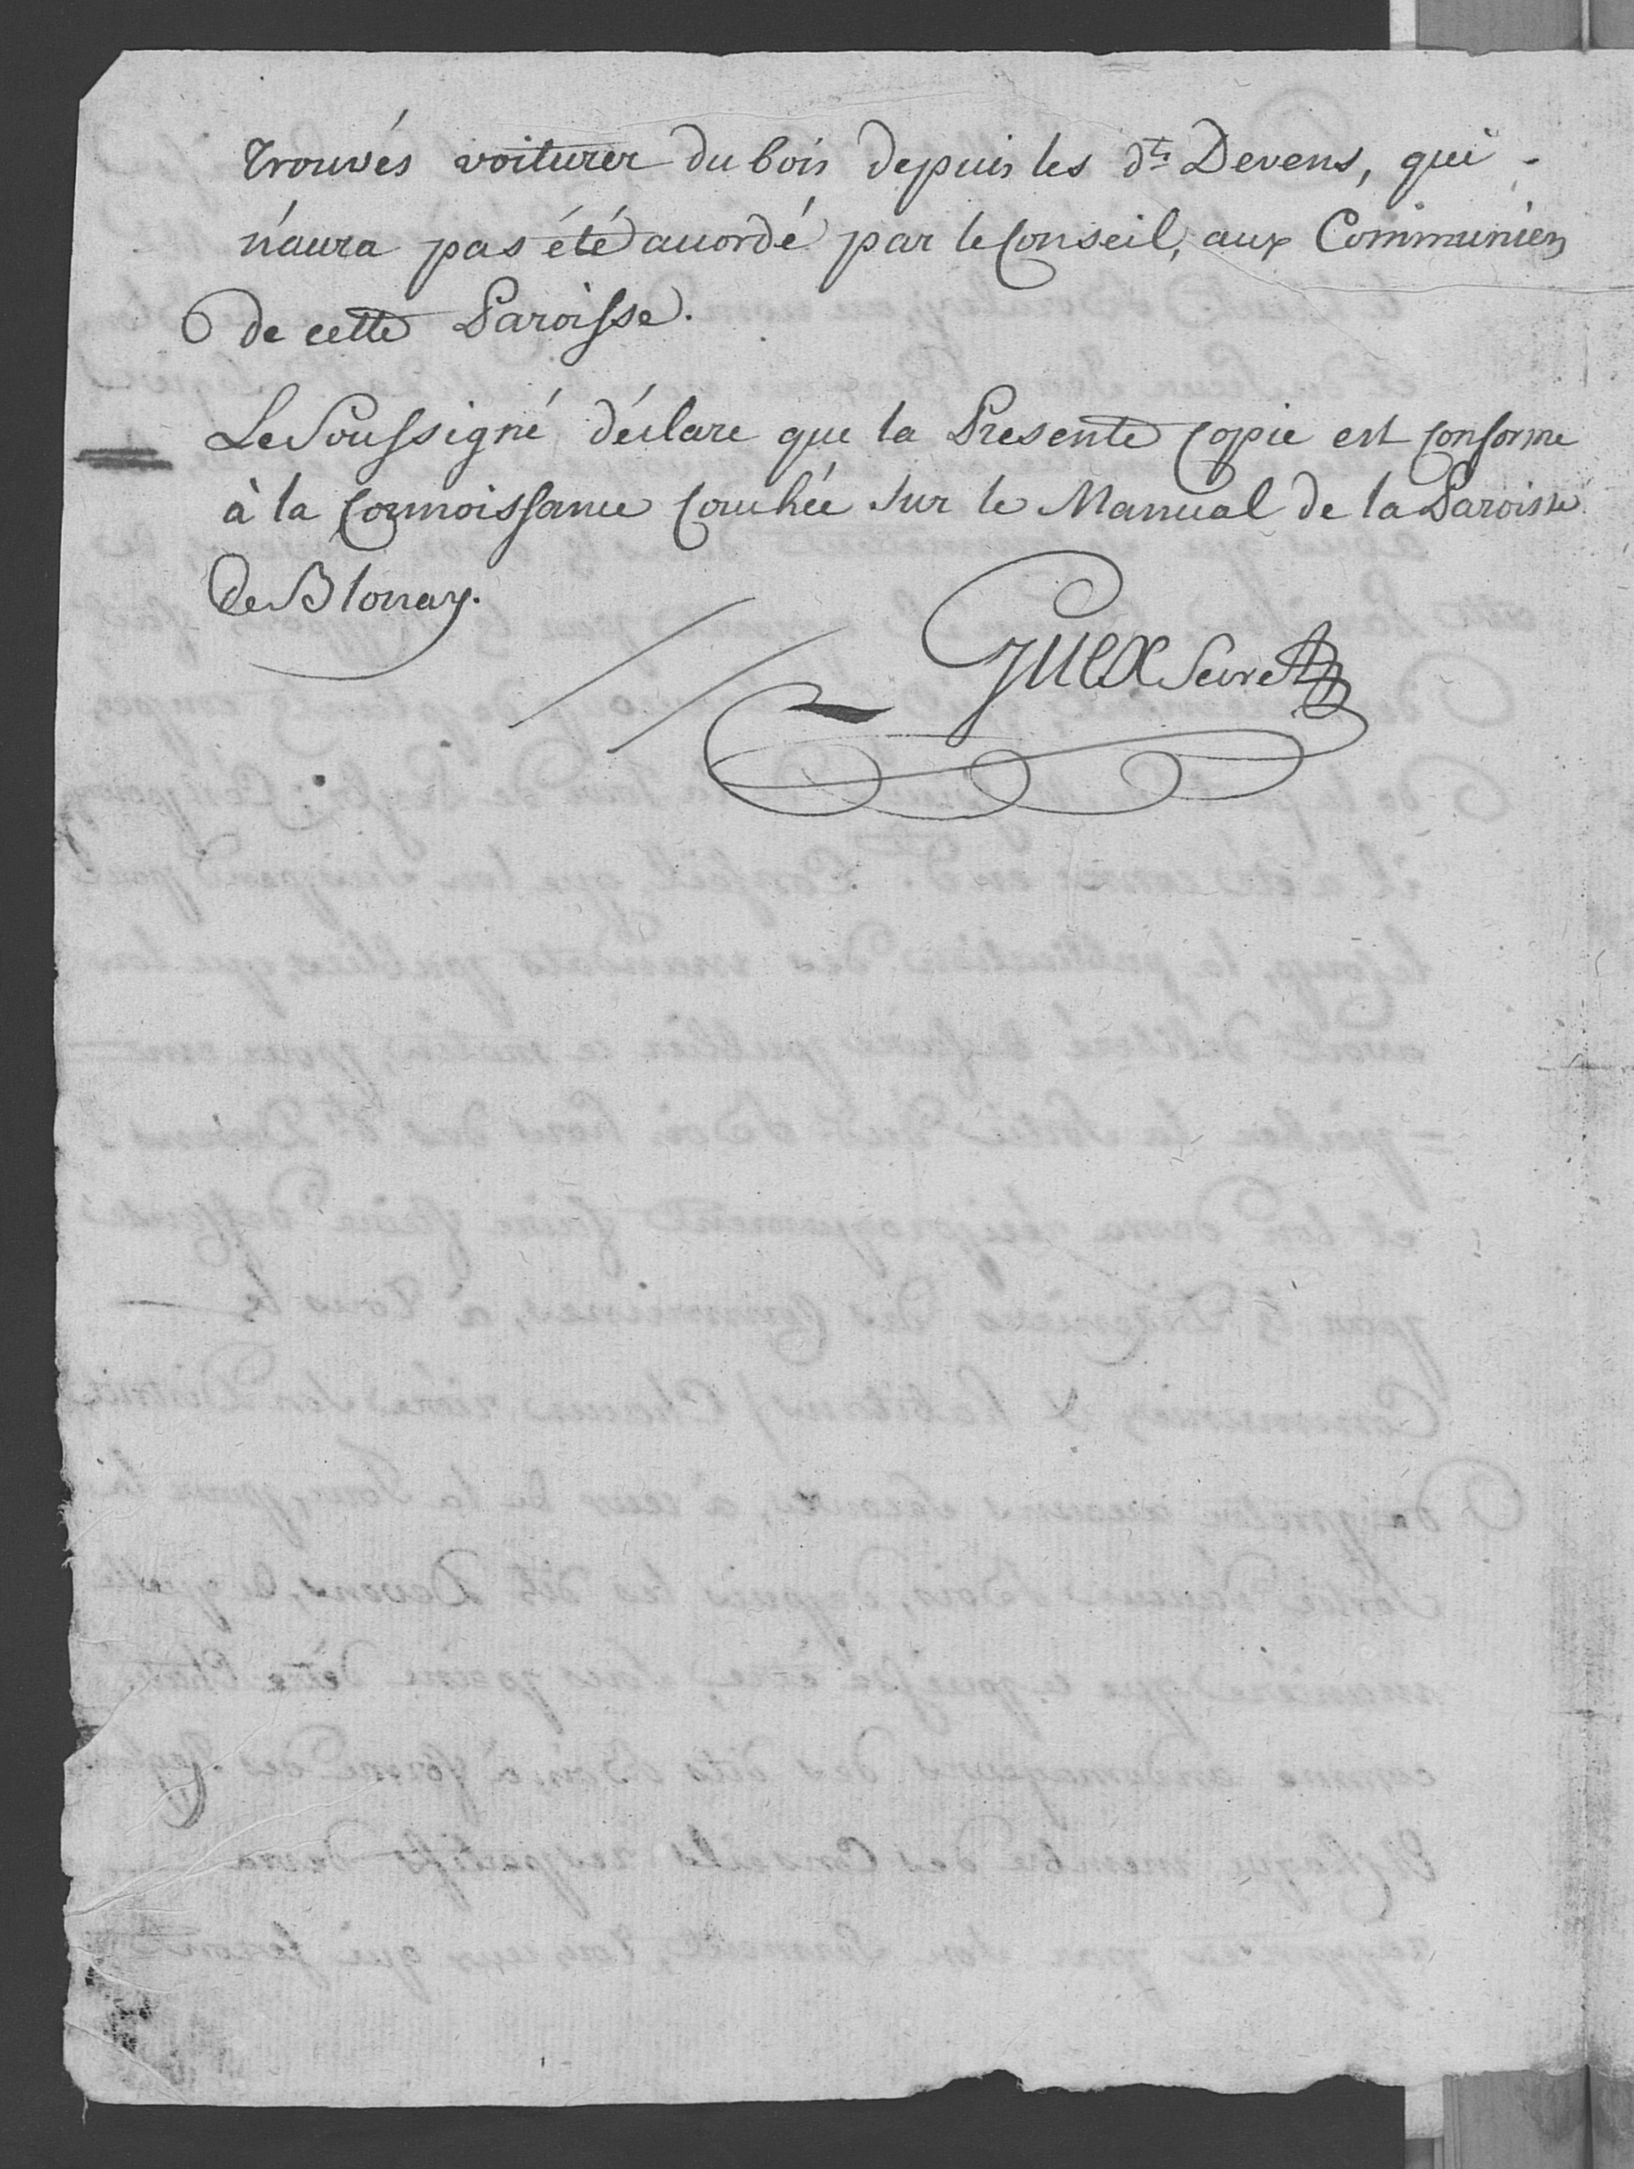 trouvés voiturer du bois depuis les dts Devens, qui
n'aura pas été accordé par le Conseil, aux Communiers
de cette Paroisse.
Le Soussigné déclare que la Presente Copie est conforme
à la Connoissance Couchée sur le Manual de la Paroisse
de Blonay.
Guex Secret